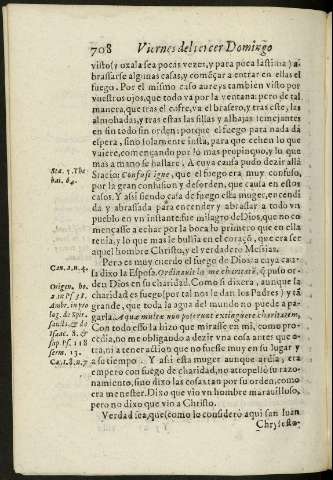 708 Viernes del tercer Domingo
visto (y oxala sea pocas vezes, y para poca lastima) a-
brassarse algunas casas, y començar a entrar en ellas el
fuego. Por el mismo caso aureys tambien visto por
vuestros ojos, que todo va por la ventana: pero de tal
manera, que tras el cofre, va el brasero, y tras este, las
almohadas, y tras estas las sillas y alhajas semejantes
en fin todo sin orden: porque el fuego para nada dà
espera, sino solamente insta, para que echen lo que
vuiere, començando por lo mas propinquo, y lo que
mas a mano se hallare. A cuya causa pudo dezir allà
Stacio: Confuse igne, que el fuego era muy confuso,
por la gran confusion y desorden, que causa en estos
casos. Y assi siendo casa de fuego esta muger, encendi
da y abrasada para encender y abrasar a todo vn
pueblo en vn instante: fue milagro de Dios, que no co
mençasse a echar por la boca lo primero que en ella
tenia, y lo que mas le bullia en el coraçõ, que era ser
aquel hombre Christo, y el verdadero Messias.
Pero es muy cuerdo el fuego de Dios: a cuya cau-
sa dixo la Esposa. Ordinauit in me charitatẽ, q̃ puso or-
den Dios en su charidad. Como si dixera, aunque la
charidad es fuego (por tal nos le dan los Padres) y tã
grande, que toda la agua del mundo no puede apa-
garla. Aquæ multæ non poterunt extinguere charitatem,
Con todo esso la hizo que mirasse en mi, como pro-
cedia, no me obligando a dezir vna cosa antes que o-
tra, ni a tener accion que no fuesse muy en su lugar y
a su tiempo. Y assi esta muger aunque ardia, era
empero con fuego de charidad, no atropellò su razo-
namiento, sino dixo las cosas tan por su orden, como
era menester. Dixo que vio vn hombre marauilloso,
pero no dixo que vio a Christo.
Verdad sea, que (como lo considerò aqui san Iuan
Chrysosto-
Sta. 5. The
bai. 64.
Can. 2. n. 4.
Origen. ho.
2. in Ps. 38.
Ambr. in pro
log. de Spir-
sancto. & de
Isaac. 8. &
sup Ps. 118
serm. 13.
Ca. 1. 8. n. 7